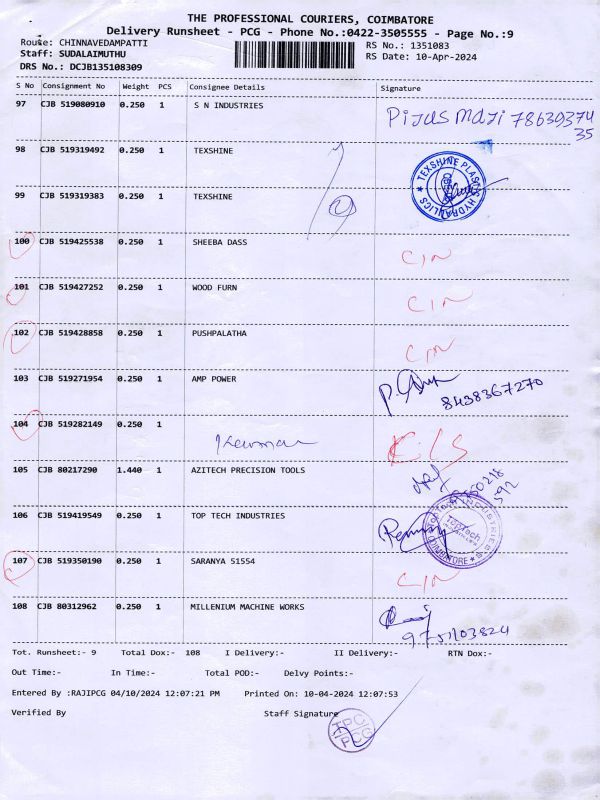 THE PROFESSIONAL COURIERS, COIMBATORE
Delivery Runsheet - PCG - Phone No.:0422-3505555 - Page No.:9
Route: CHINNAVEDAMPATTI
RS No.: 1351083
Staff: SUDALAIMUTHU
RS Date: 10-Apr-2024
DRS No.: DCJB135108309
S No Consignment No Weight PCS Consignee Details Signature
97 CJB 519080910 0.250 1 S N INDUSTRIES
78639374
35
98 CJB 519319492 0.250 1 TEXSHINE
TEXSHINE PLASTICS HYDRAULICS
99 CJB 519319383 0.250 1 TEXSHINE
100 CJB 519425538 0.250 1 SHEEBA DASS C/N
101 CJB 519427252 0.250 1 WOOD FURN C/N
102 CJB 519428858 0.250 1 PUSHPALATHA C/N
103 CJB 519271954 0.250 1 AMP POWER
8438367270
104 CJB 519282149 0.250 1
105 CJB 80217290 1.440 1 AZITECH PRECISION TOOLS
106 CJB 519419549 0.250 1 TOP TECH INDUSTRIES
TopTech INDUSTRIES COIMBATORE
107 CJB 519350190 0.250 1 SARANYA 51554 C/N
108 CJB 80312962 0.250 1 MILLENIUM MACHINE WORKS
Tot. Runsheet:- 9 Total Dox:- 108 I Delivery:- II Delivery:- RTN Dox:-
Out Time:- In Time:- Total POD:- Delvy Points:-
Entered By :RAJIPCG 04/10/2024 12:07:21 PM Printed On: 10-04-2024 12:07:53
Verified By Staff Signature
TPC
PCG